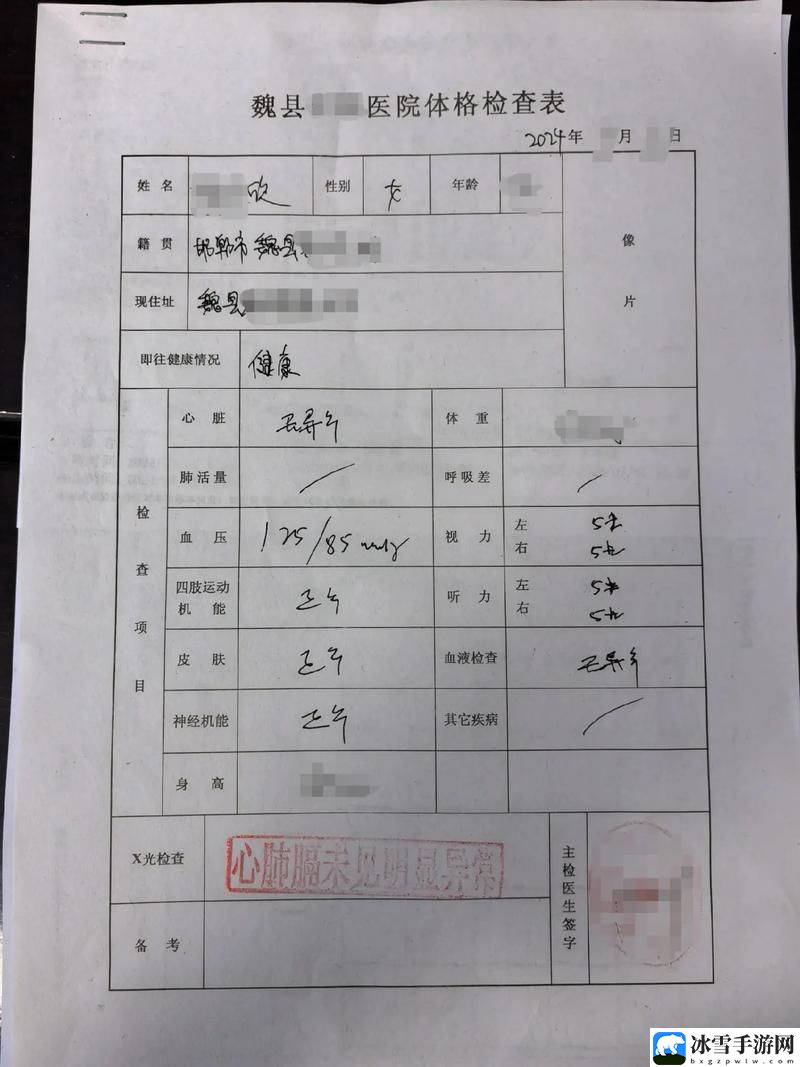 魏县 医院体格检查表
2024年 月 日
姓 名 欣 性别 女 年龄
像
片
籍 贯 邯郸市魏县
现住址 魏县
即往健康情况 健康
检
查
项
目
心 脏 无异常 体 重
肺活量 / 呼吸差 /
血 压 125/85mmHg 视 力 左
右
四肢运动
机 能 正常 听 力 左
右
皮 肤 正常 血液检查 无异常
神经机能 正常 其它疾病 /
身 高
X光检查 心肺膈未见明显异常
主
检
医
生
签
字
备 考
冰雪手游网
bxgzpwlw.com